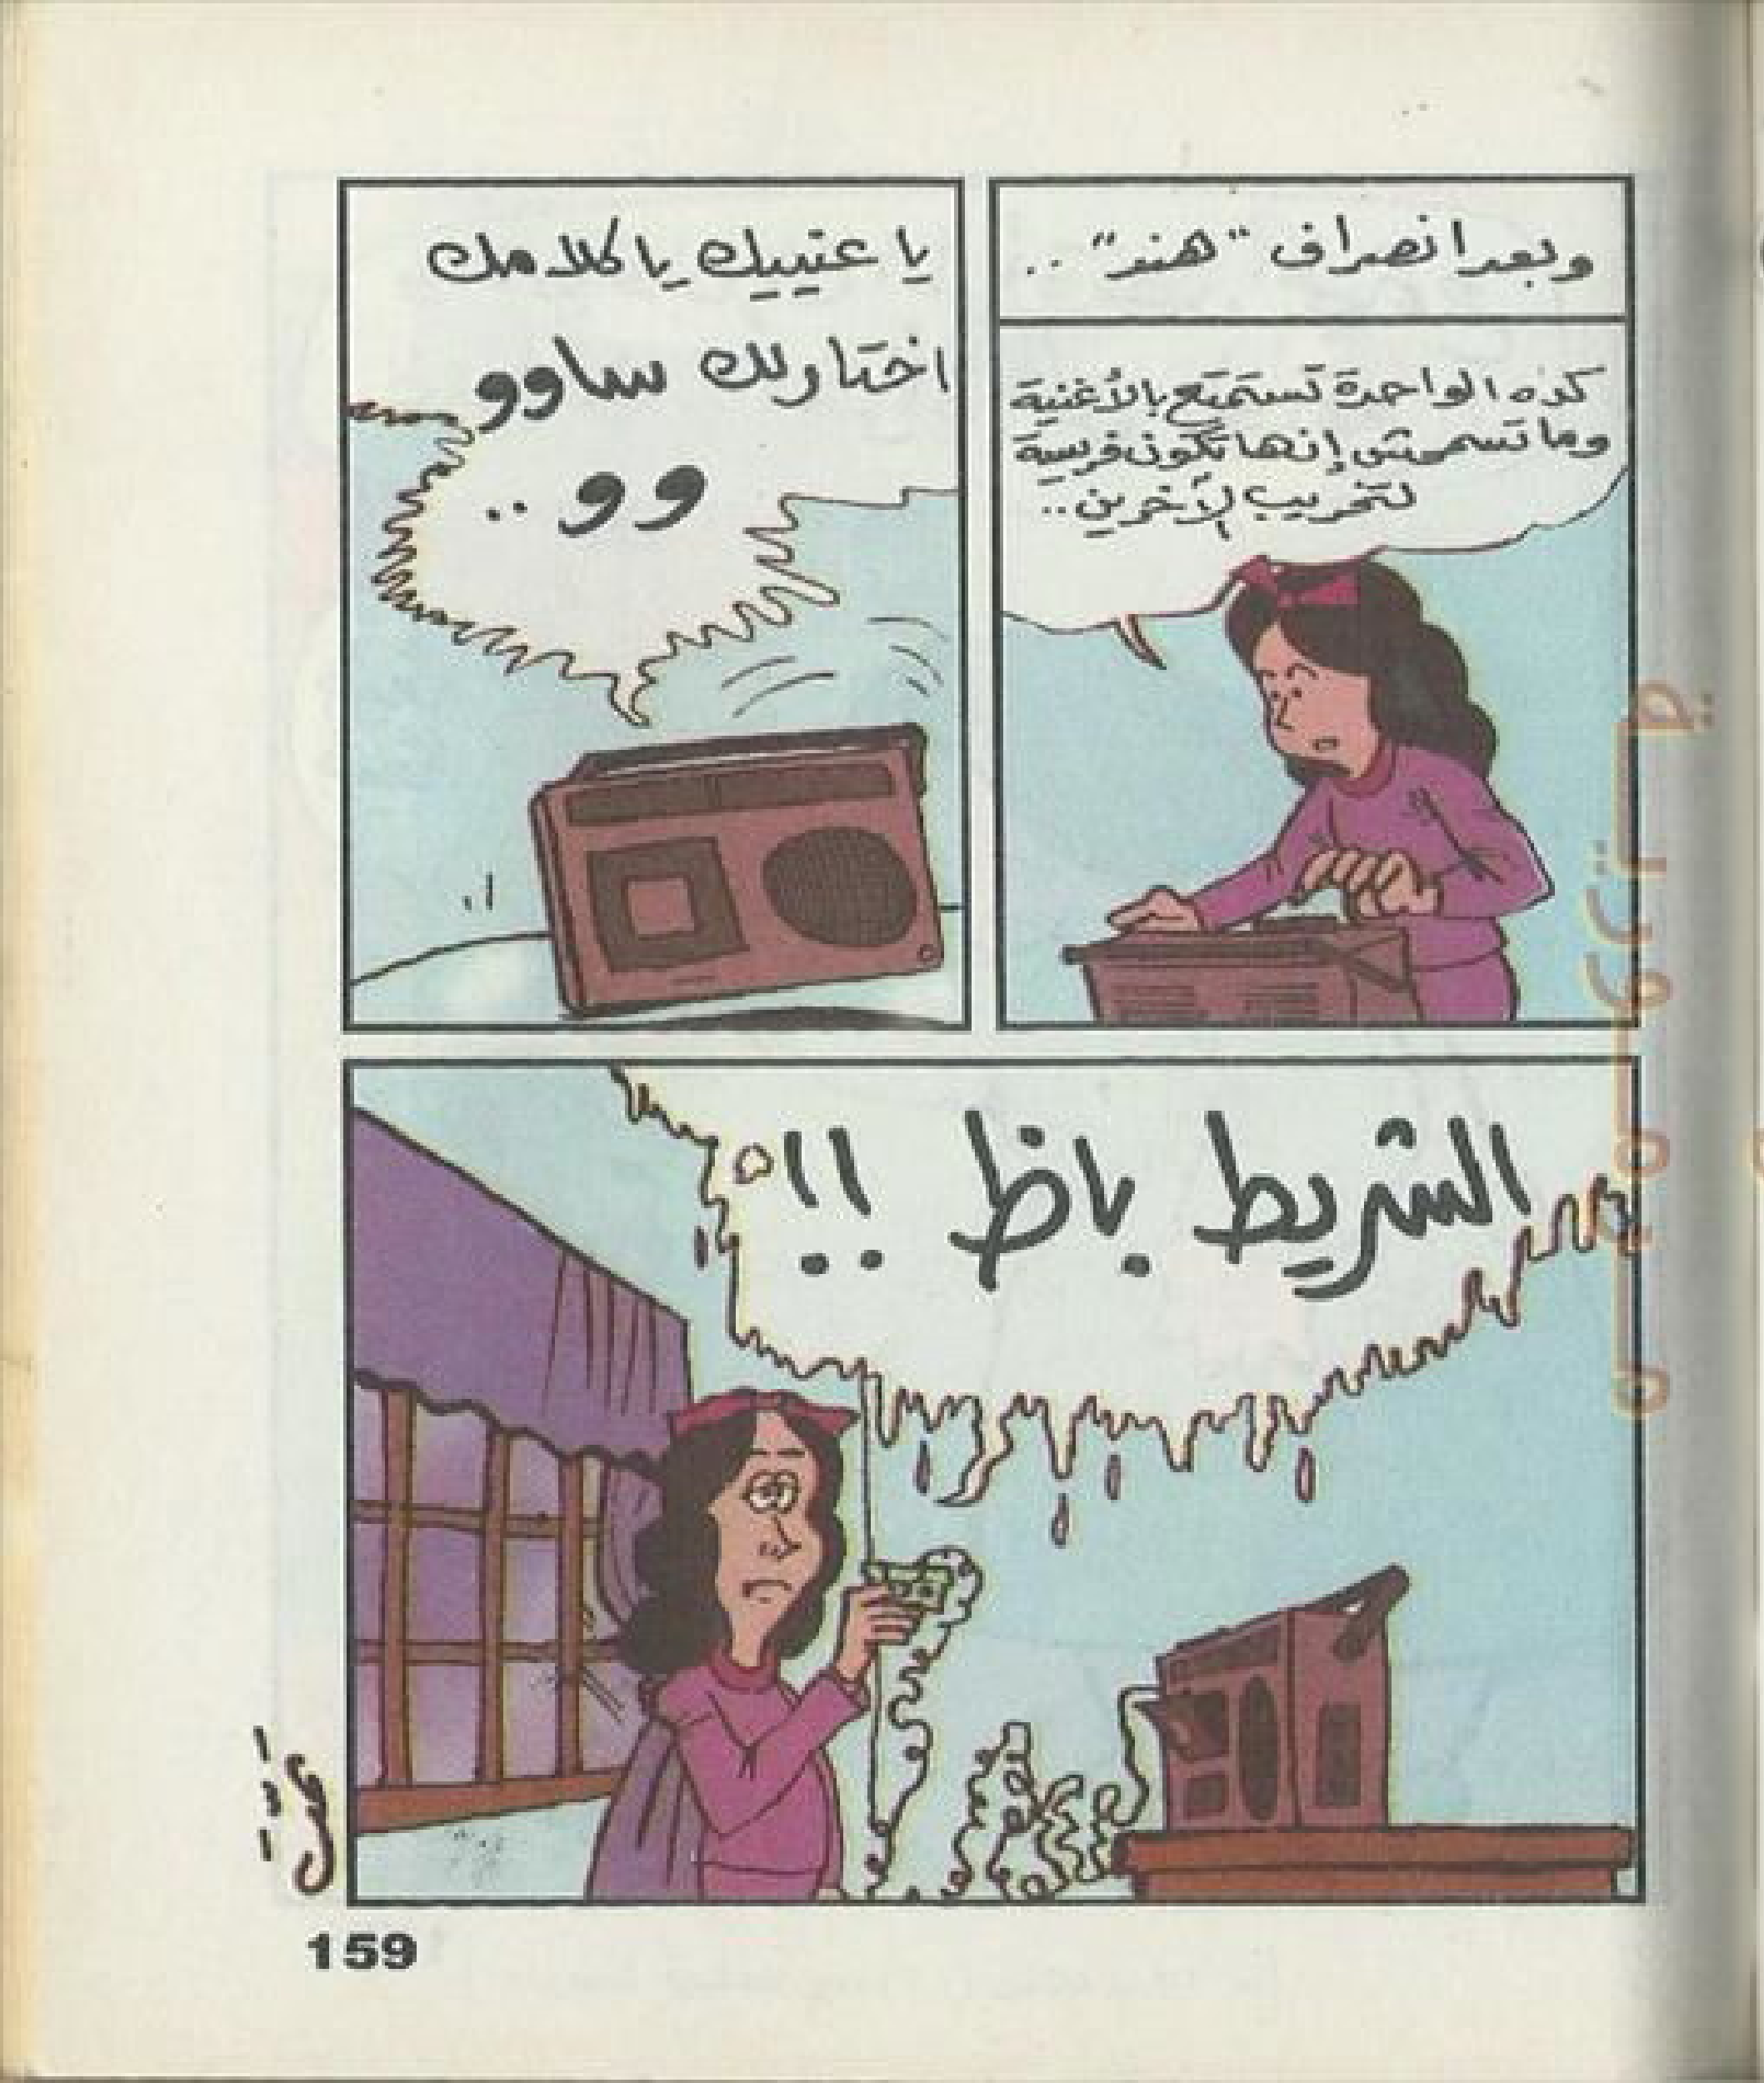 وبعد انصراف "هند" ..
كده الواحدة تستمتع بالأغنية
وما تسمحش إنها تكون فريسة
لتخريب الآخرين ..
يا عنييك يا كلامك
اختارلك ساوو
وو ..
الشريط باظ !!
159